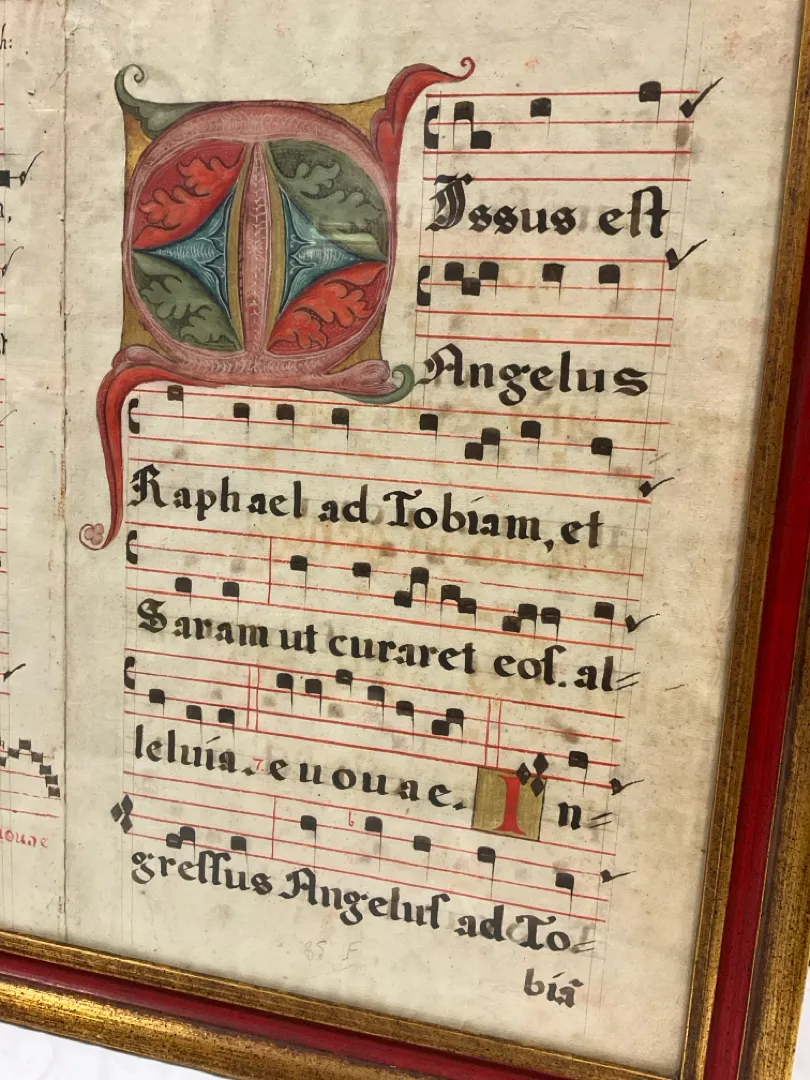 MIssus eſt
Angelus
Raphael ad Tobiam, et
Saram ut curaret eoſ. al=
leluia. 7. e u o u a e. In=
greſſus Angeluſ ad To=
biã